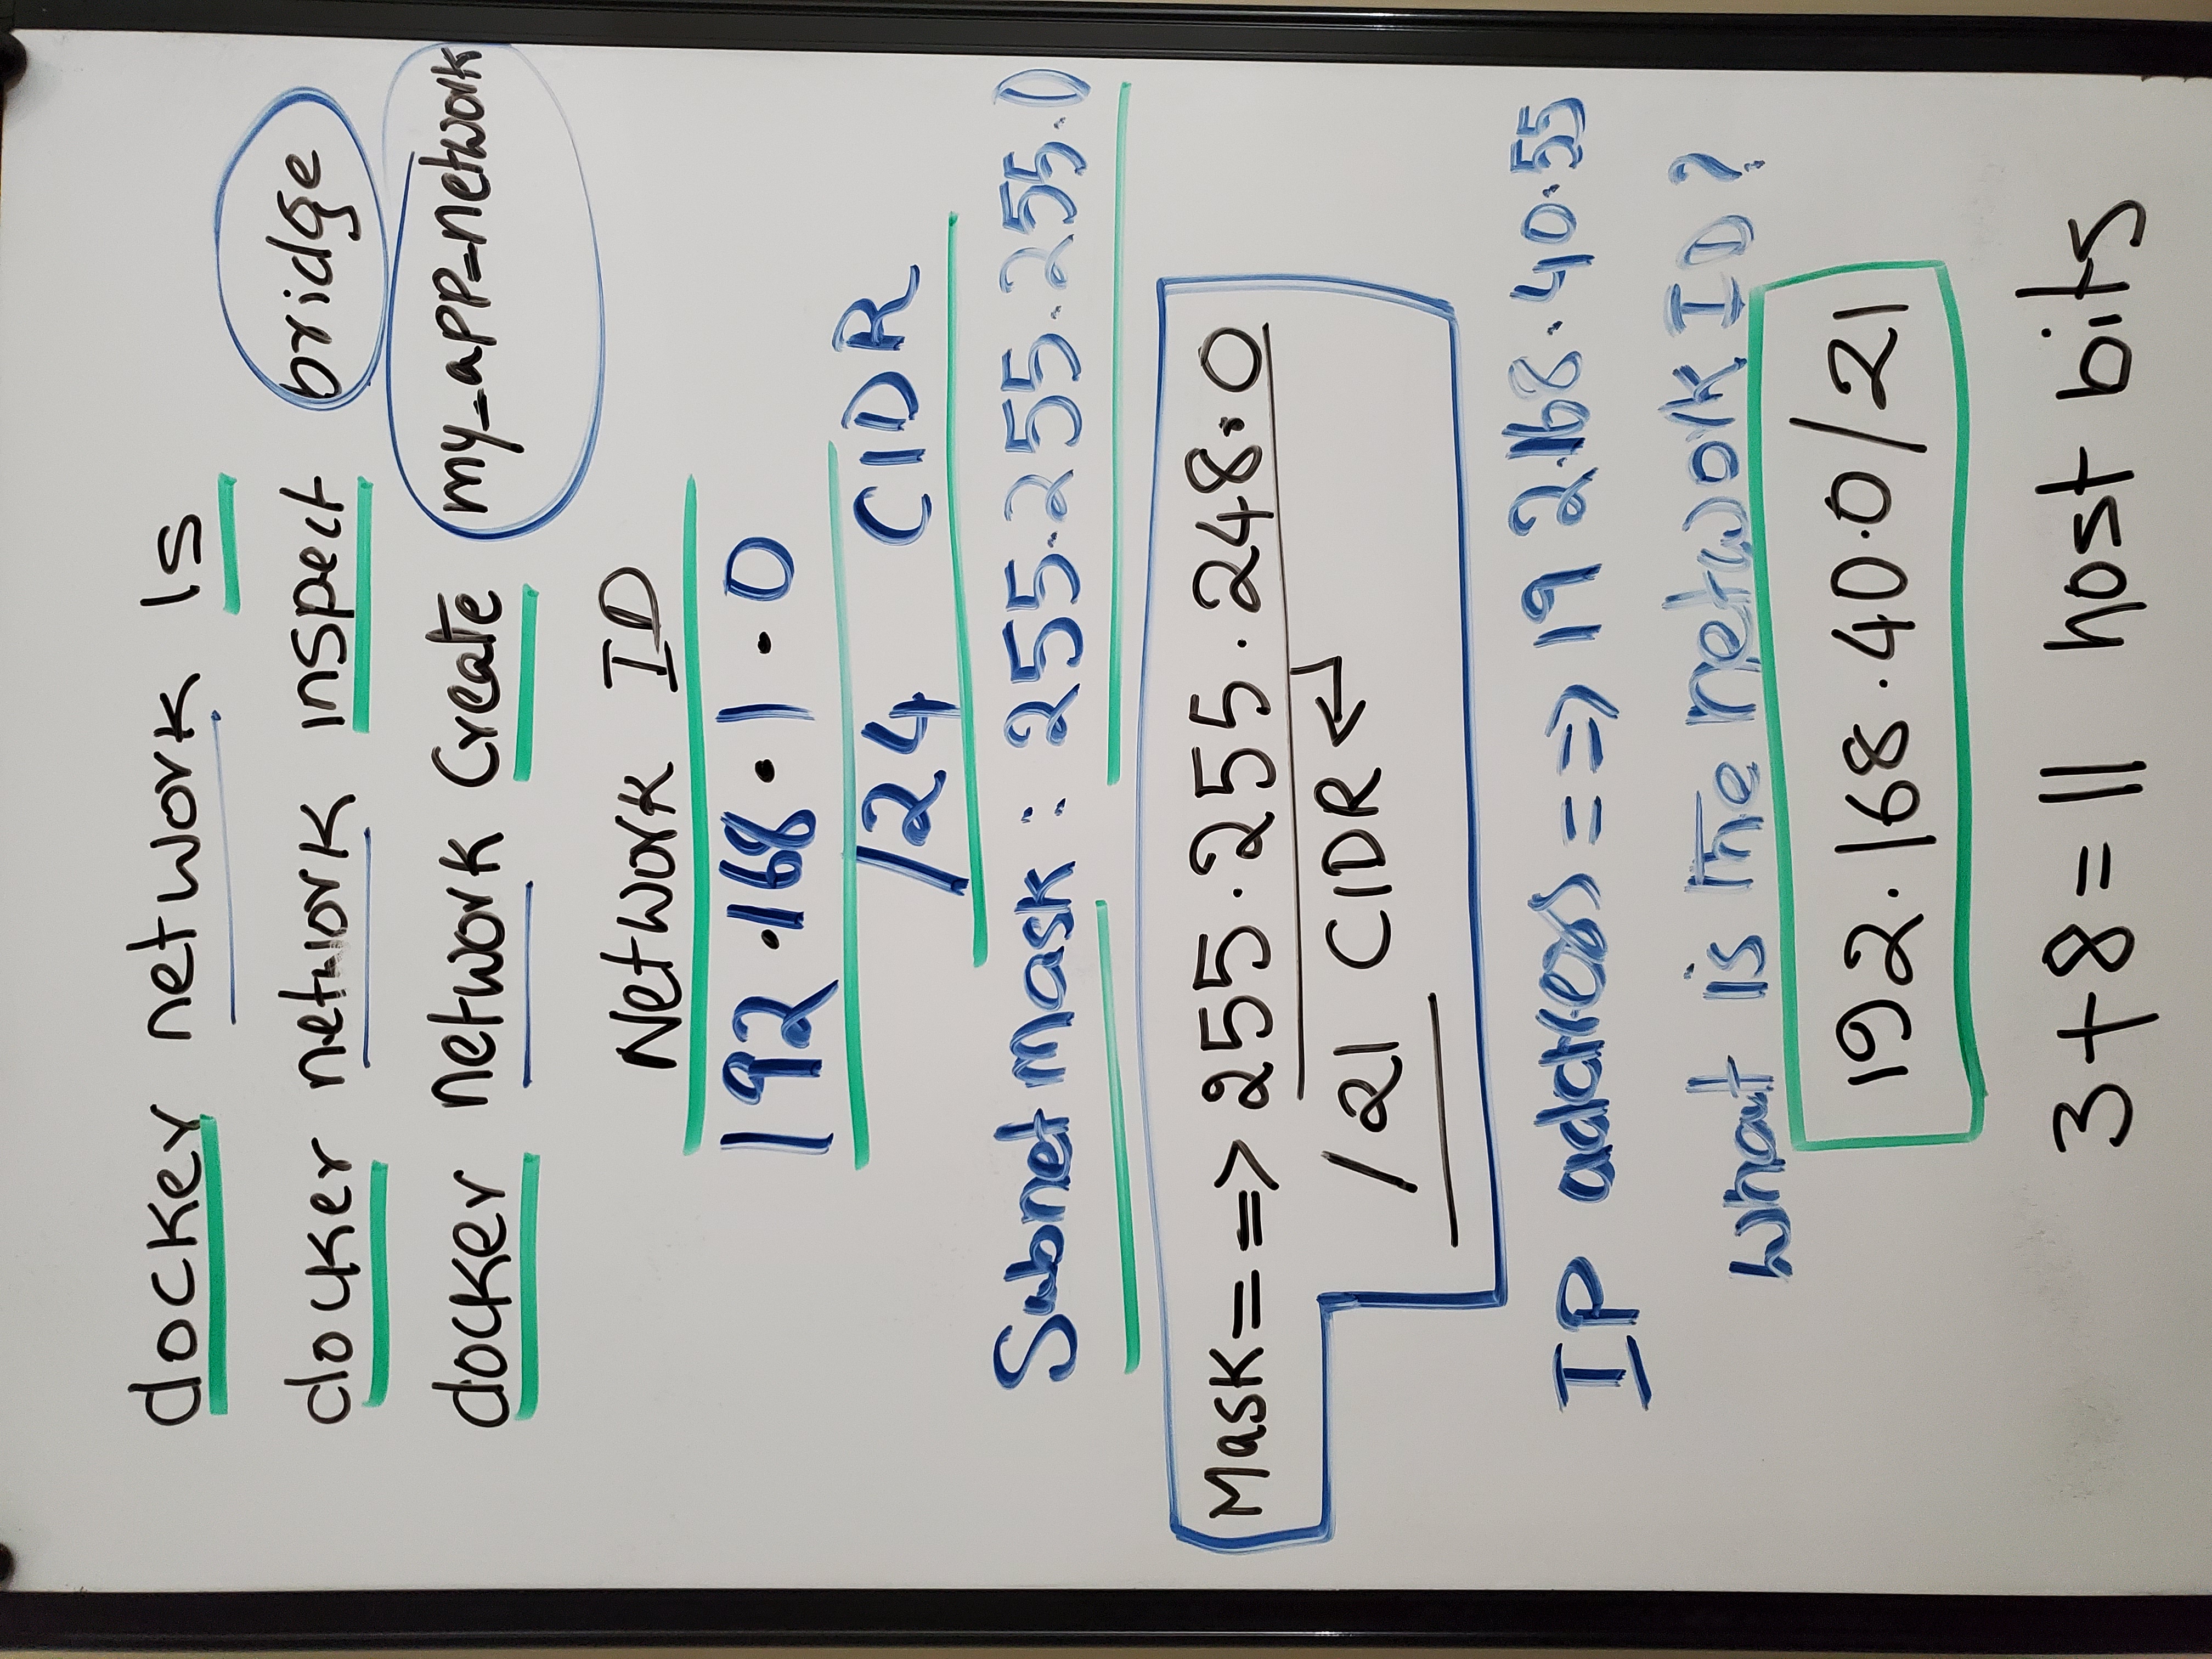 docker network ls
docker network inspect bridge
docker network create my_app_network
Network ID
192.168.1.0
/24 CIDR
Subnet Mask : 255.255.255.0
Mask = => 255.255.248.0
/21 CIDR ↵
IP address = => 192.168.40.55
What is the network ID ?
192.168.40.0/21
3+8=11 host bits